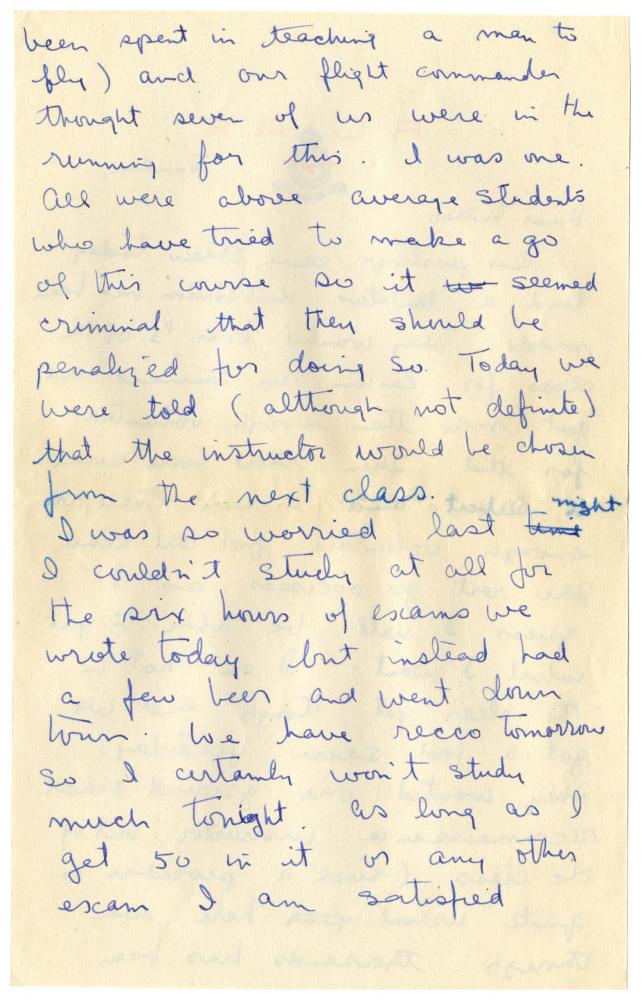 been spent in teaching a man to
fly) and our flight commander
thought seven of us were in the
running for this. I was one.
All were above average students
who have tried to make a go
of this course so it seemed
criminal that they should be
penalized for doing so. Today we
were told (although not definite)
that the instructor would be chosen
from the next class.
I was so worried last night
I couldn't study at all for
the six hours of exams we
wrote today but instead had
a few beers and went down
town. We have recco tomorrow
so I certainly won't study
much tonight. As long as I
get 50 in it or any other
exam I am satisfied